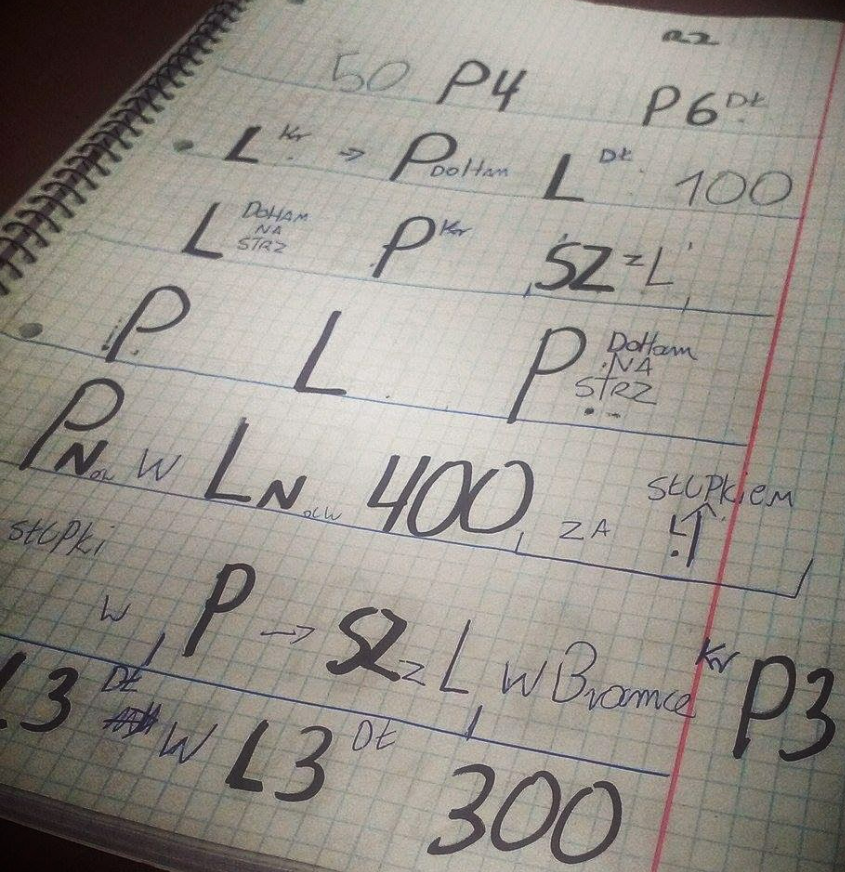 50 P4 P6 Dł
L Kr → P DoHam L Dł 100
L DOHAM NA STRZ P Kr SZ z L
P L P DoHam NA STRZ
P N W L N 400 ZA SŁUPKIEM
SŁUPKI W P → SZ z L W Bramce Kr P3
L3 Dł W L3 Dł 300